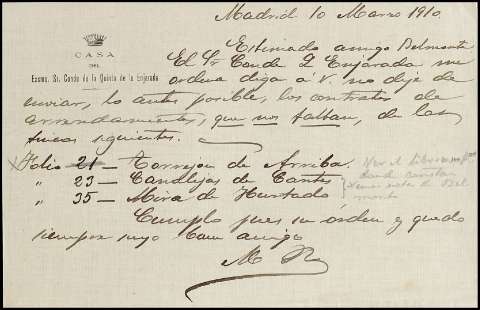 Madrid 10 Marzo 1910.
CASA
DEL
Excmo. Sr. Conde de la Quinta de la Enjarada
Estimado amigo Belmonte
El Sr Conde Q Enjarada me
ordena diga á V. no deje de
enviar, lo antes posible, los contratos de
arrendamientos, que nos faltan, de las
fincas siguientes.
Folio 21 — Torrejon de Arriba
" 23 — Candlejos de Contes
" 35 — Mira de Hurtado
Ver el libro
donde constan
Belmonte
Cumplo pues su orden y quedo
siempre suyo buen amigo
M